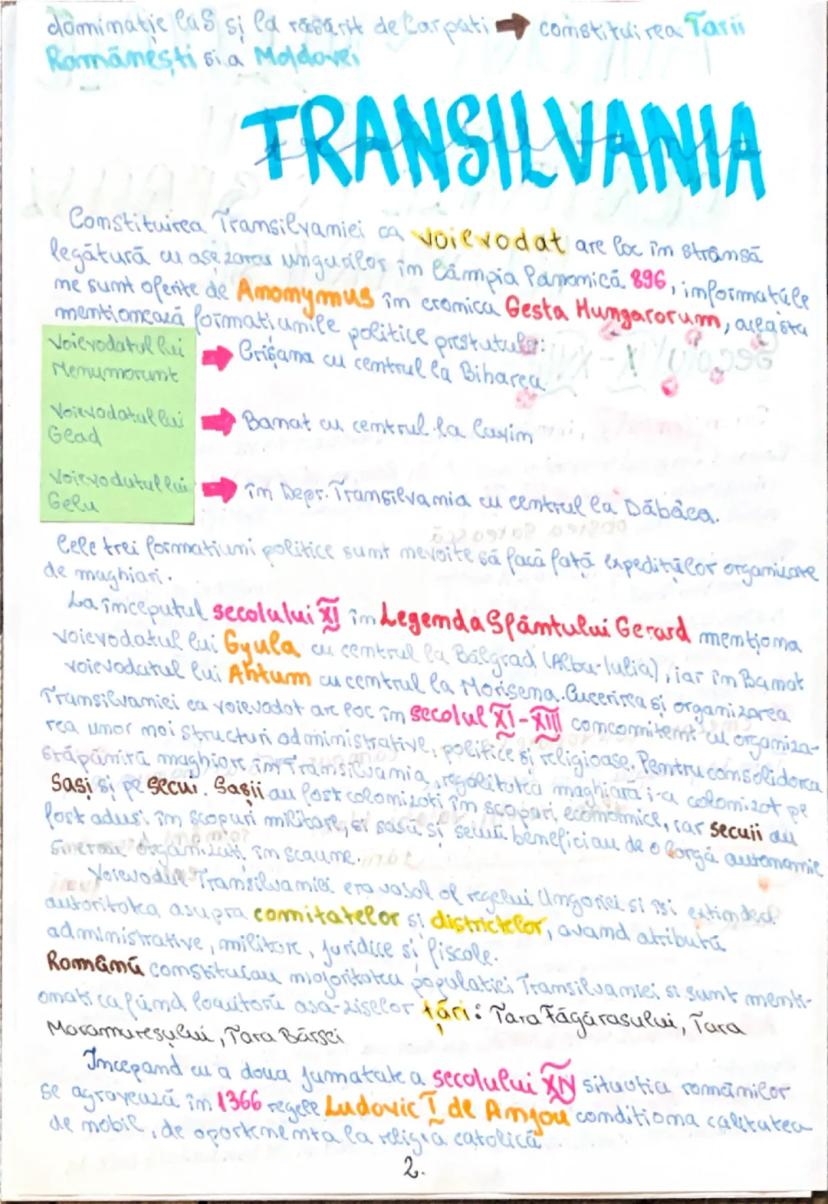 dominație la S și la răsărit de Carpati → constituirea Tarii
Românești si a Moldovei
TRANSILVANIA
Constituirea Transilvaniei ca voievodat are loc în strânsă
legătură cu așezarea ungurilor în Câmpia Panonică 896, informațiile
ne sunt oferite de Anonymus în cronica Gesta Hungarorum, aceasta
menționează formatiunile politice
Voievodatul lui Menumorunt → Crișana cu centrul la Biharea
Voievodatul lui Glad → Banat cu centrul la Cuvin
Voievodatul lui Gelu → în Depr. Transilvania cu centrul la Dăbâca.
Cele trei formatiuni politice sunt nevoite să facă față expedițiilor organizate
de maghiari.
La începutul secolului XI în Legenda Sfântului Gerard menționa
voievodatul lui Gyula cu centrul la Bălgrad (Alba-Iulia), iar în Banat
voievodatul lui Ahtum cu centrul la Morisena. Cucerirea și organizarea
Transilvaniei ca voievodat are loc în secolul XI-XIII concomitent cu organiza-
rea unor noi structuri administrative, politice și religioase. Pentru consolidarea
stăpânirii maghiare în Transilvania, regalitatea maghiară i-a colonizat pe
Sași și pe Secui. Sașii au fost colonizați în scopuri economice, iar secuii au
fost aduși în scopuri militare, și sașii și secuii beneficiau de o largă autonomie
organizați în scaune.
Voievodul Transilvaniei era vasal al regelui Ungariei si își extindea
autoritatea asupra comitatelor si districtelor, avand atribuții
administrative, militare, juridice si fiscale.
Românii constituiau majoritatea populatiei Transilvaniei si sunt menti-
onati ca fiind locuitorii asa-ziselor țări: Tara Făgărasului, Tara
Maramureșului, Tara Bârsei
Începand cu a doua jumatate a secolului XIV situatia românilor
se agravează în 1366 regele Ludovic I de Anjou conditiona calitatea
de nobil, de la religia catolică
2.